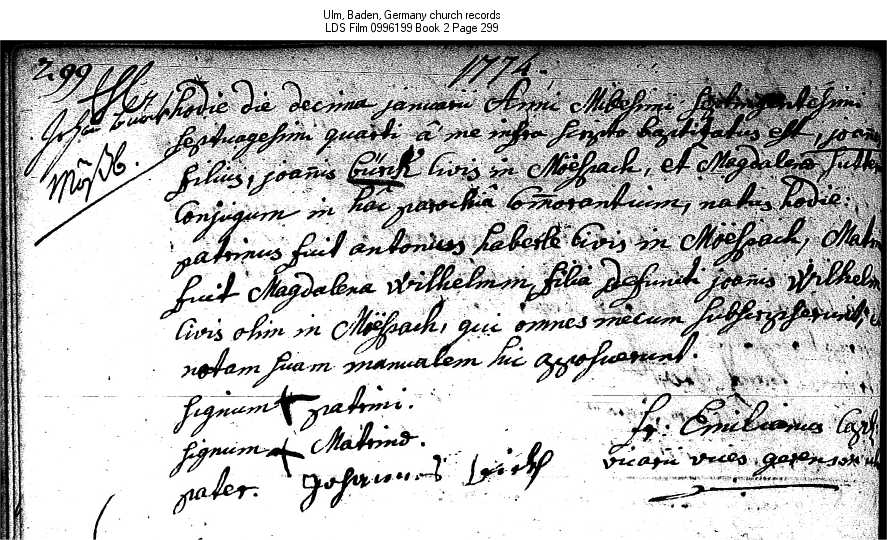 Ulm, Baden, Germany church records
LDS Film 0996199 Book 2 Page 299
299
1774.
Hodie die decima januarii Anni Millesimi Septingentesimi
septuagesimi quarti â me infra scripto baptizatus est, joañes
filius, joañis Bürck civis in Möespach, et Magdalena
Conjugum in hâc parochiâ Comorantium, natus hodie:
patrinus fuit antonius haberle civis in Möespach, Matrina
fuit Magdalena Wilhelmin, filia defuncti joañis Wilhelm
civis olim in Möespach, qui omnes mecum subscripserunt,
notam suam manualem hic apposuerunt.
signum + patrini.
signum + Matrinæ.
fr. Emilianus
pater. Johannes
vicarii vices gerens